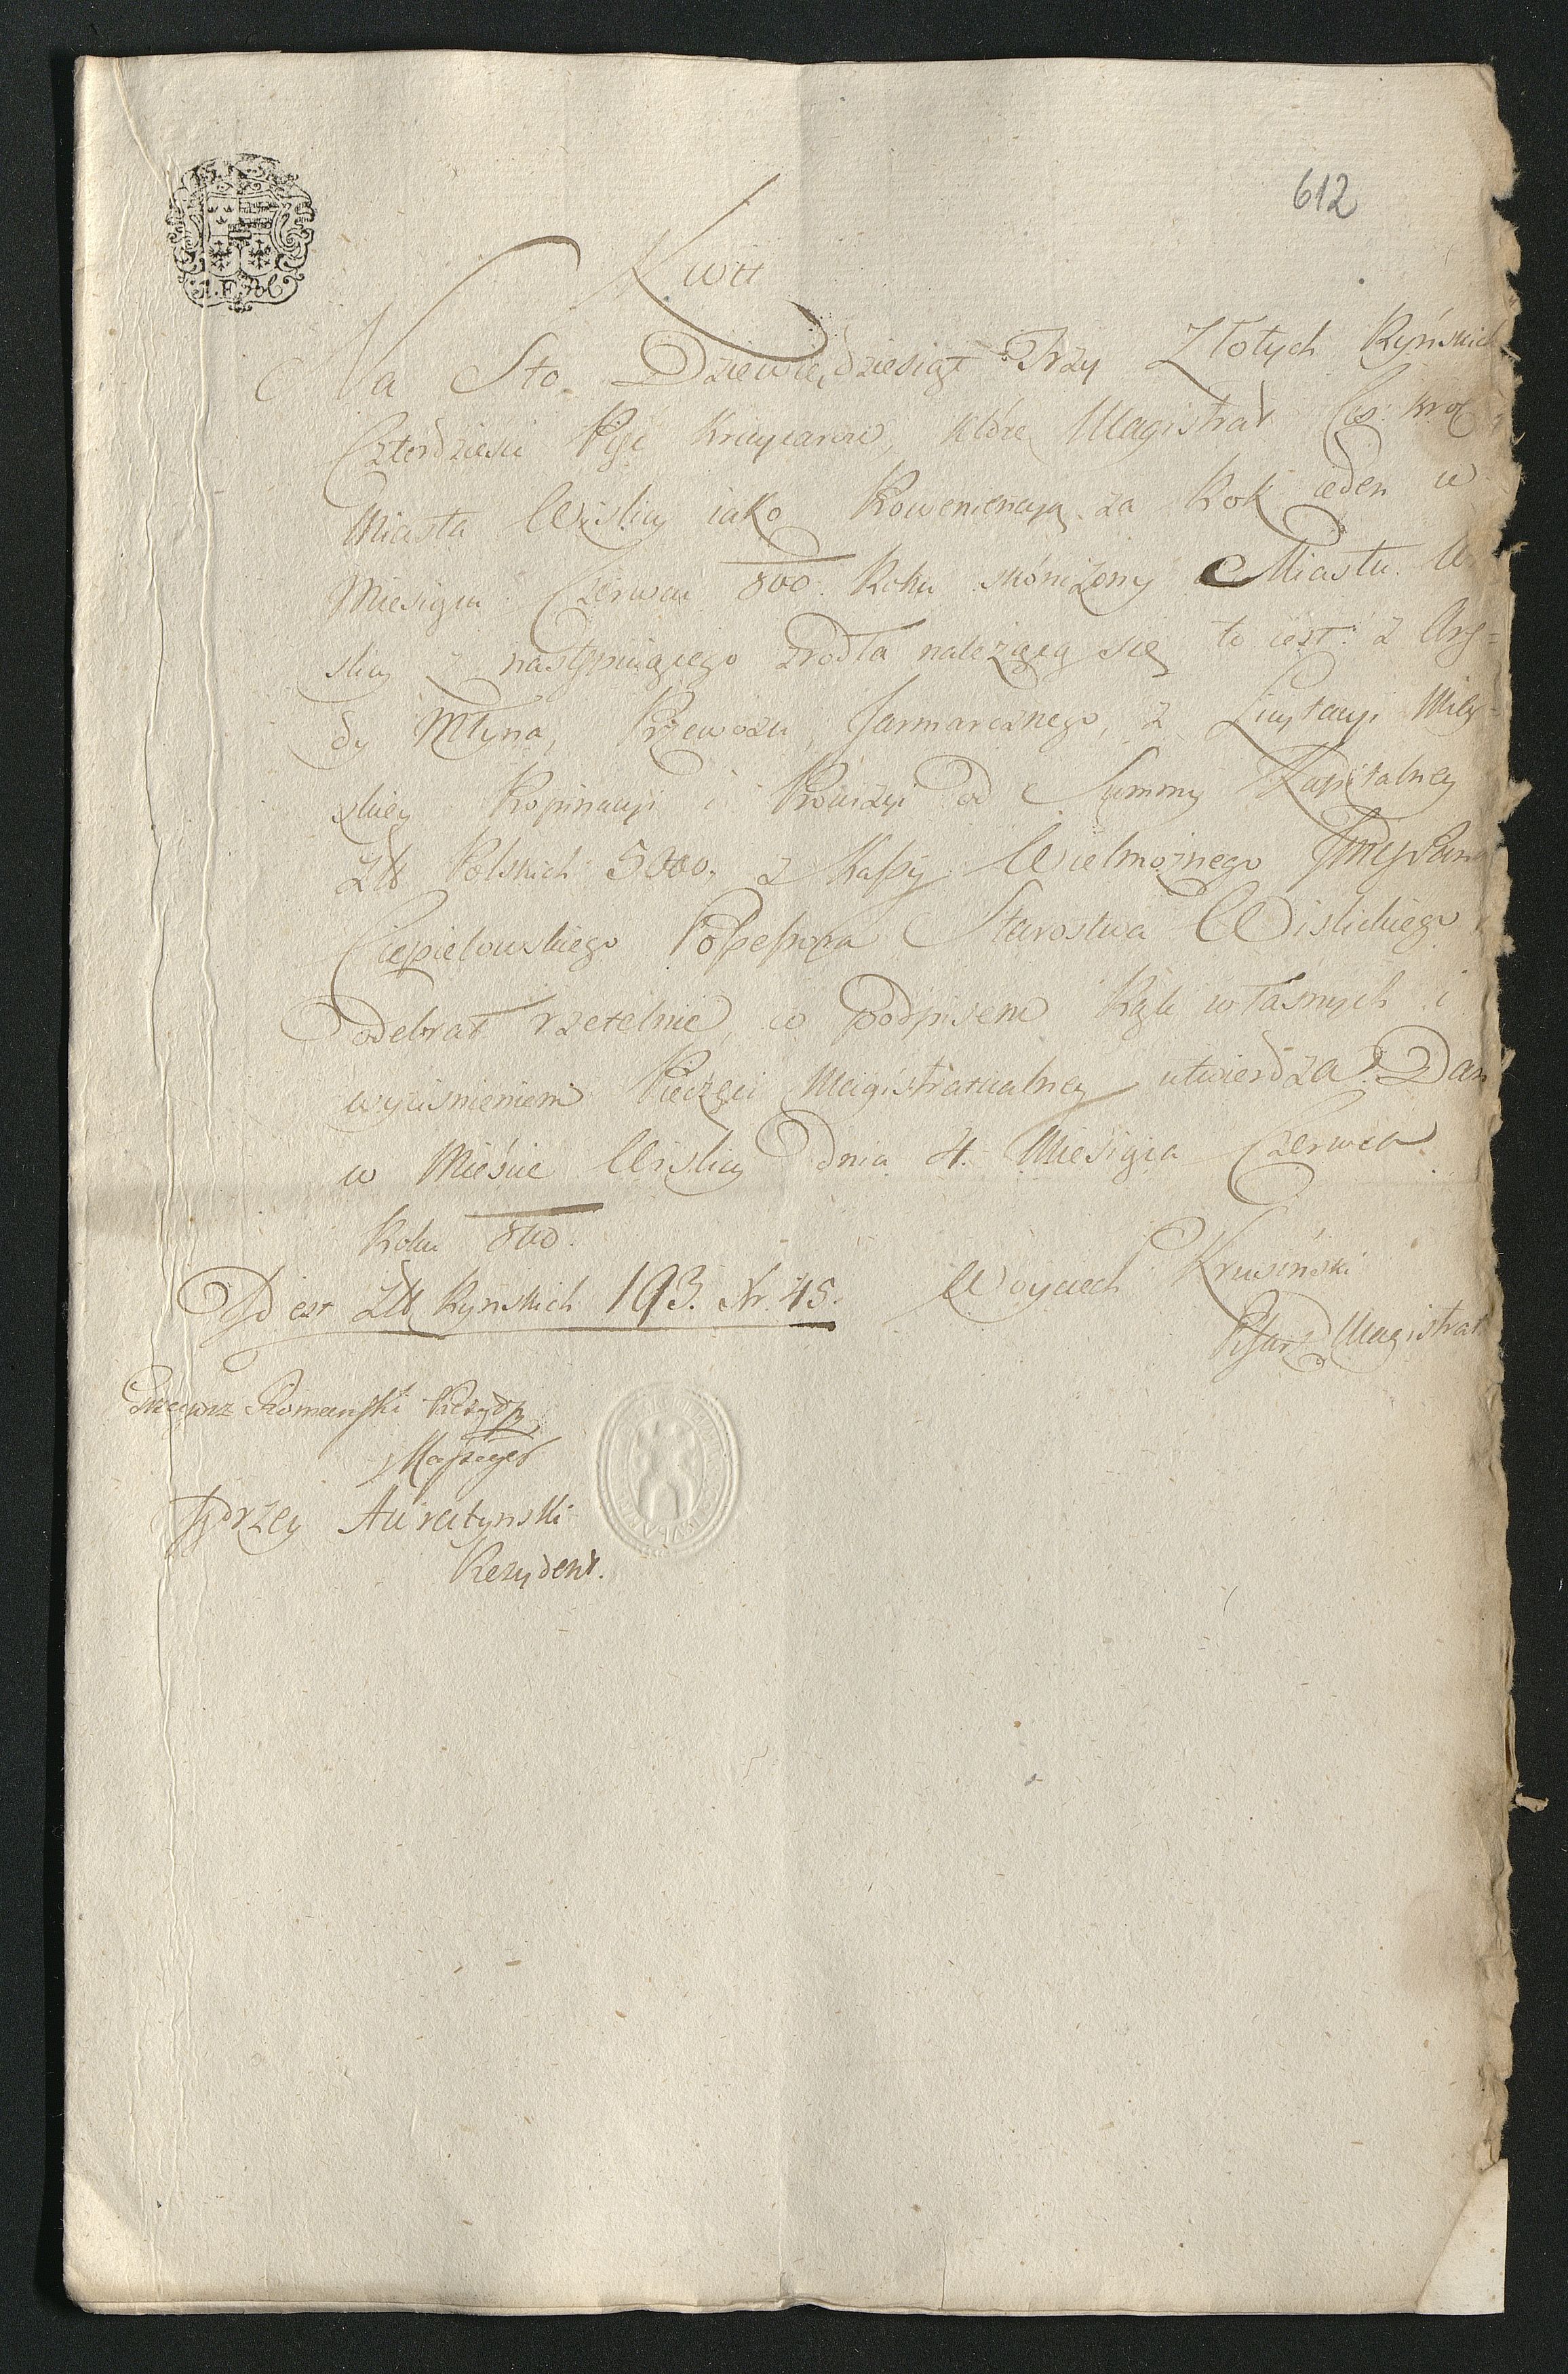 612
Kwit
Na Sto Dziewięćdziesiąt Trzy Złotych Ryńskich
Czterdzieści Pięć Kraycarow, które Magistrat Ces: Krol:
Miasta Wislicy iako Koweniencyą za Rok ieden w
Miesiącu Czerwcu 800. Roku skończony Miastu Wi
slicy z następuiącego zrodła należącą się to iest: z Aręn=
dy Młyna, Przewozu, Jarmarcznego, z Licytacyi Miey=
skiey Propinacyi i Prowizyi od Summy Kapitalney
Złł Polskich 5000. z Kassy Wielmożnego JmćPana
Ciepielowskiego Possessora Starostwa Wislickiego
odebrał rzetelnie, co podpisem Rąk własnych i
wyciśnieniem Pieczęci Magistratualney utwierdza. Dan
w Mieście Wislicy Dnia 4. Miesiąca Czerwca
Roku 800.
Id est Złł Ryńskich 193. Xr. 45.
Woyciech Kruśinski
Pisarz Magistrat
Romanski
Jędrzey
Rezydent.